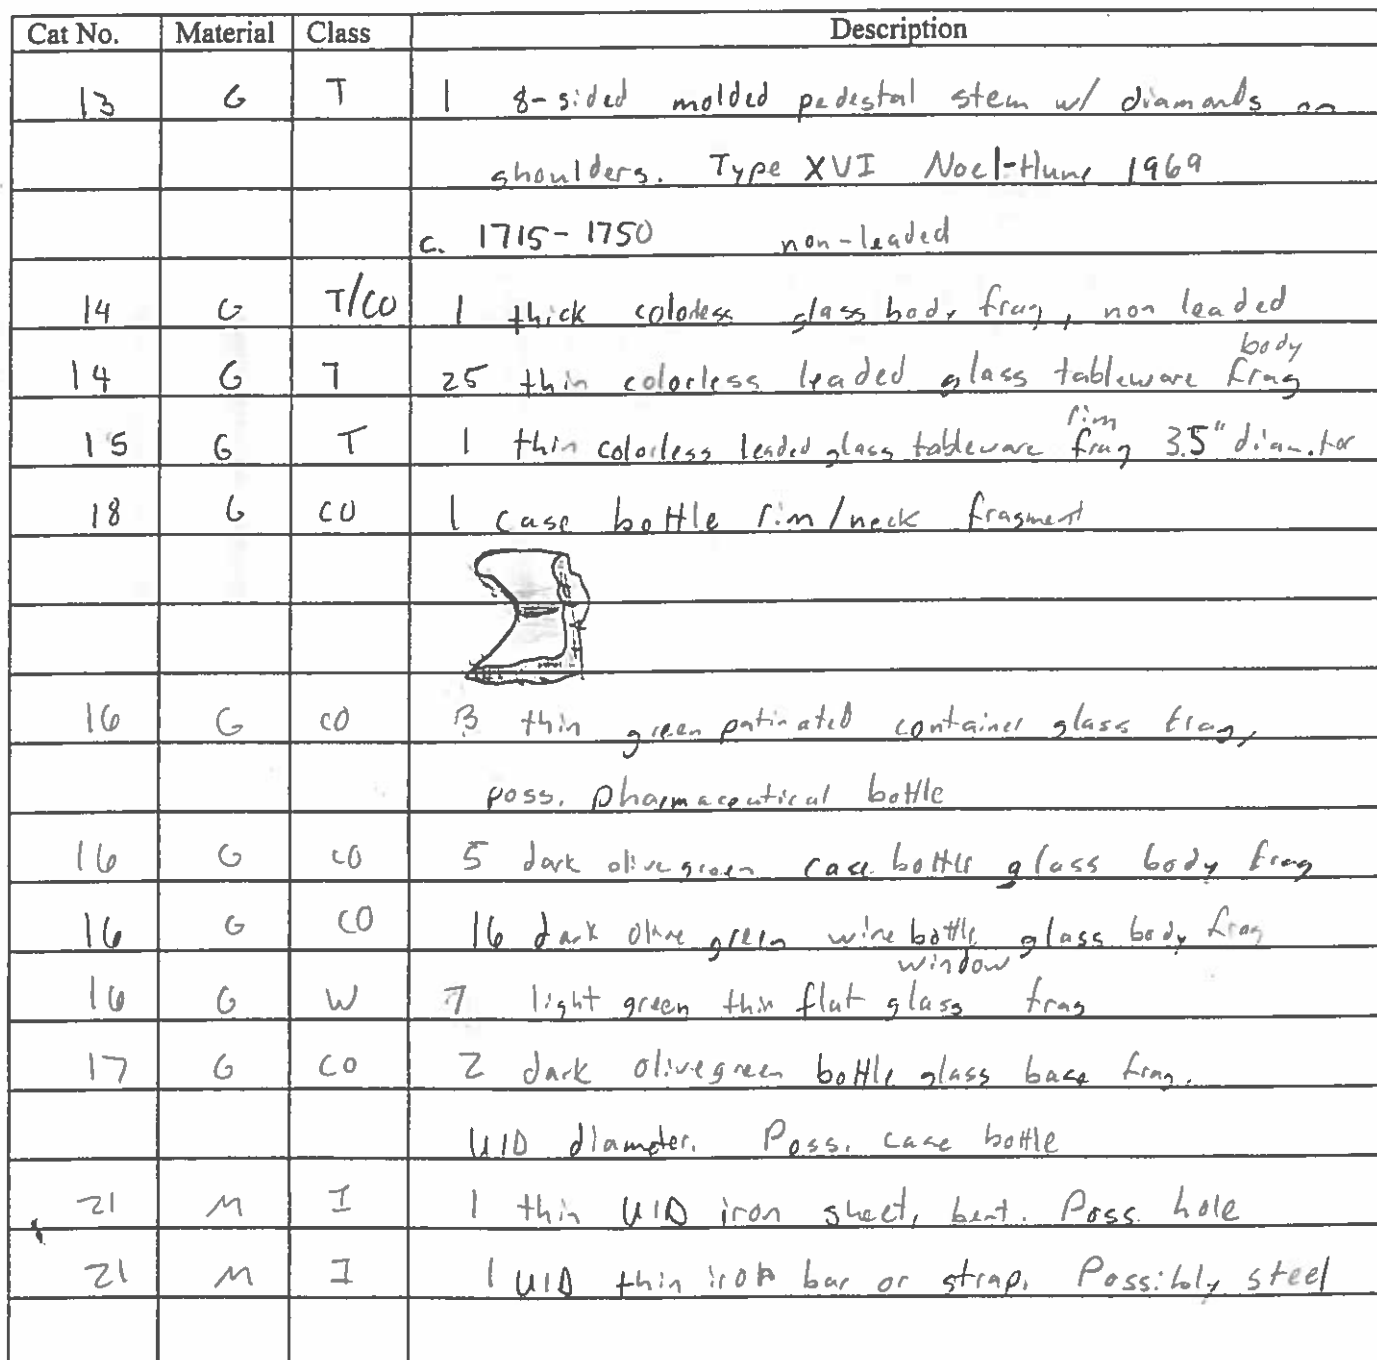 Cat No. Material Class Description
13 G T 1 8-sided molded pedestal stem w/ diamonds on
shoulders. Type XVI Noel-Hume 1969
c. 1715-1750 non-leaded
14 G T/CO 1 thick colorless glass body frag, non leaded
14 G T 25 thin colorless leaded glass tableware body frag
15 G T 1 thin colorless leaded glass tableware rim frag 3.5" diameter
18 G CO 1 case bottle rim/neck fragment
16 G CO 3 thin green patinated container glass frag,
poss. pharmaceutical bottle
16 G CO 5 dark olive green case bottle glass body frag
16 G CO 16 dark olive green wine bottle glass body frag
16 G W 7 light green thin flat window glass frag
17 G CO 2 dark olive green bottle glass base frag.
UID diameter. Poss. case bottle
21 M I 1 thin UID iron sheet, bent. Poss. hole
21 M I 1 UID thin iron bar or strap. Possibly steel